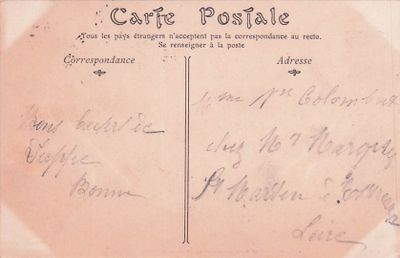 Carte Postale
Tous les pays étrangers n'acceptent pas la correspondance au recto.
Se renseigner à la poste
Correspondance
Adresse
Bons
de
Bonne
Mme Colombat
chez Mr
St Martin
Loire